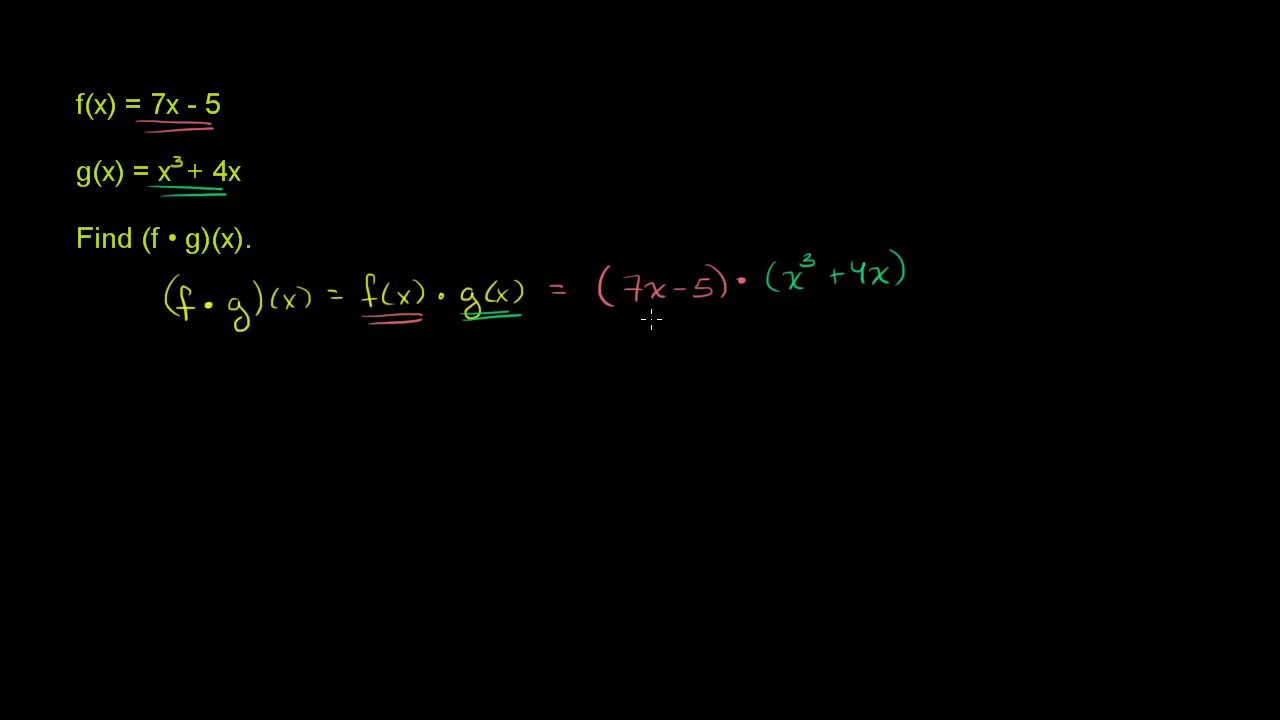 f(x) = 7x - 5
g(x) = x³ + 4x
Find (f • g)(x).
(f • g)(x) = f(x) • g(x) = (7x - 5) • (x³ + 4x)